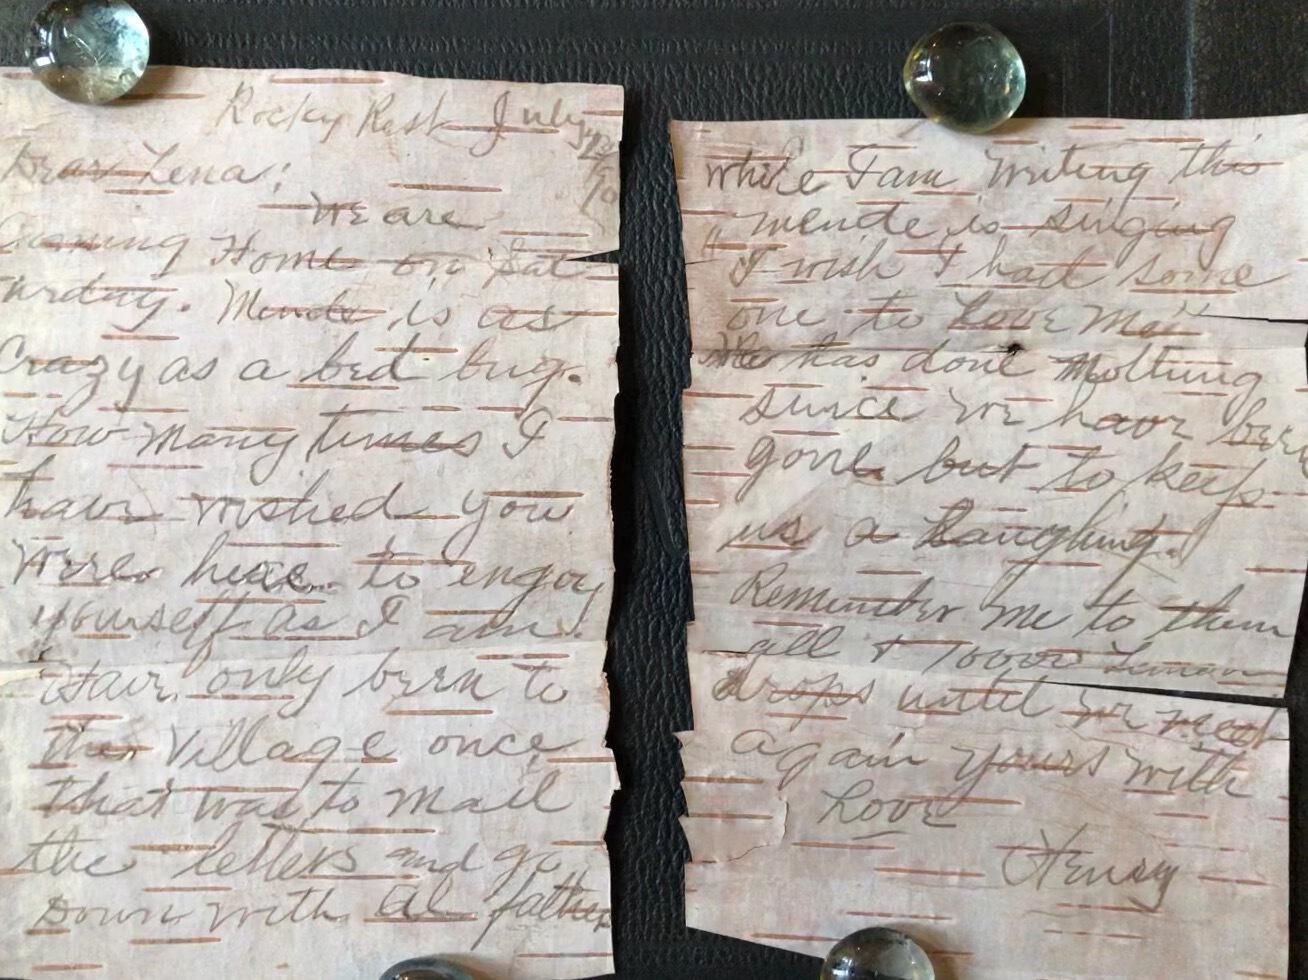 Rocky Rest July
Dear Lena:
We are
Coming Home on Sat-
urday. Mende is as
Crazy as a bed bug.
How many times I
have wished you
were here to engoy
yourself as I am.
Have only been to
the Village once,
that was to mail
the letters and go
Down with Al father
while I am writing this
mende is singing
"I wish I had some
one to Love Me"
He has done Nothing
since we have been
gone but to keep
us a Laughing.
Remember me to them
all &
drops until we meet
again yours with
Love
Henry